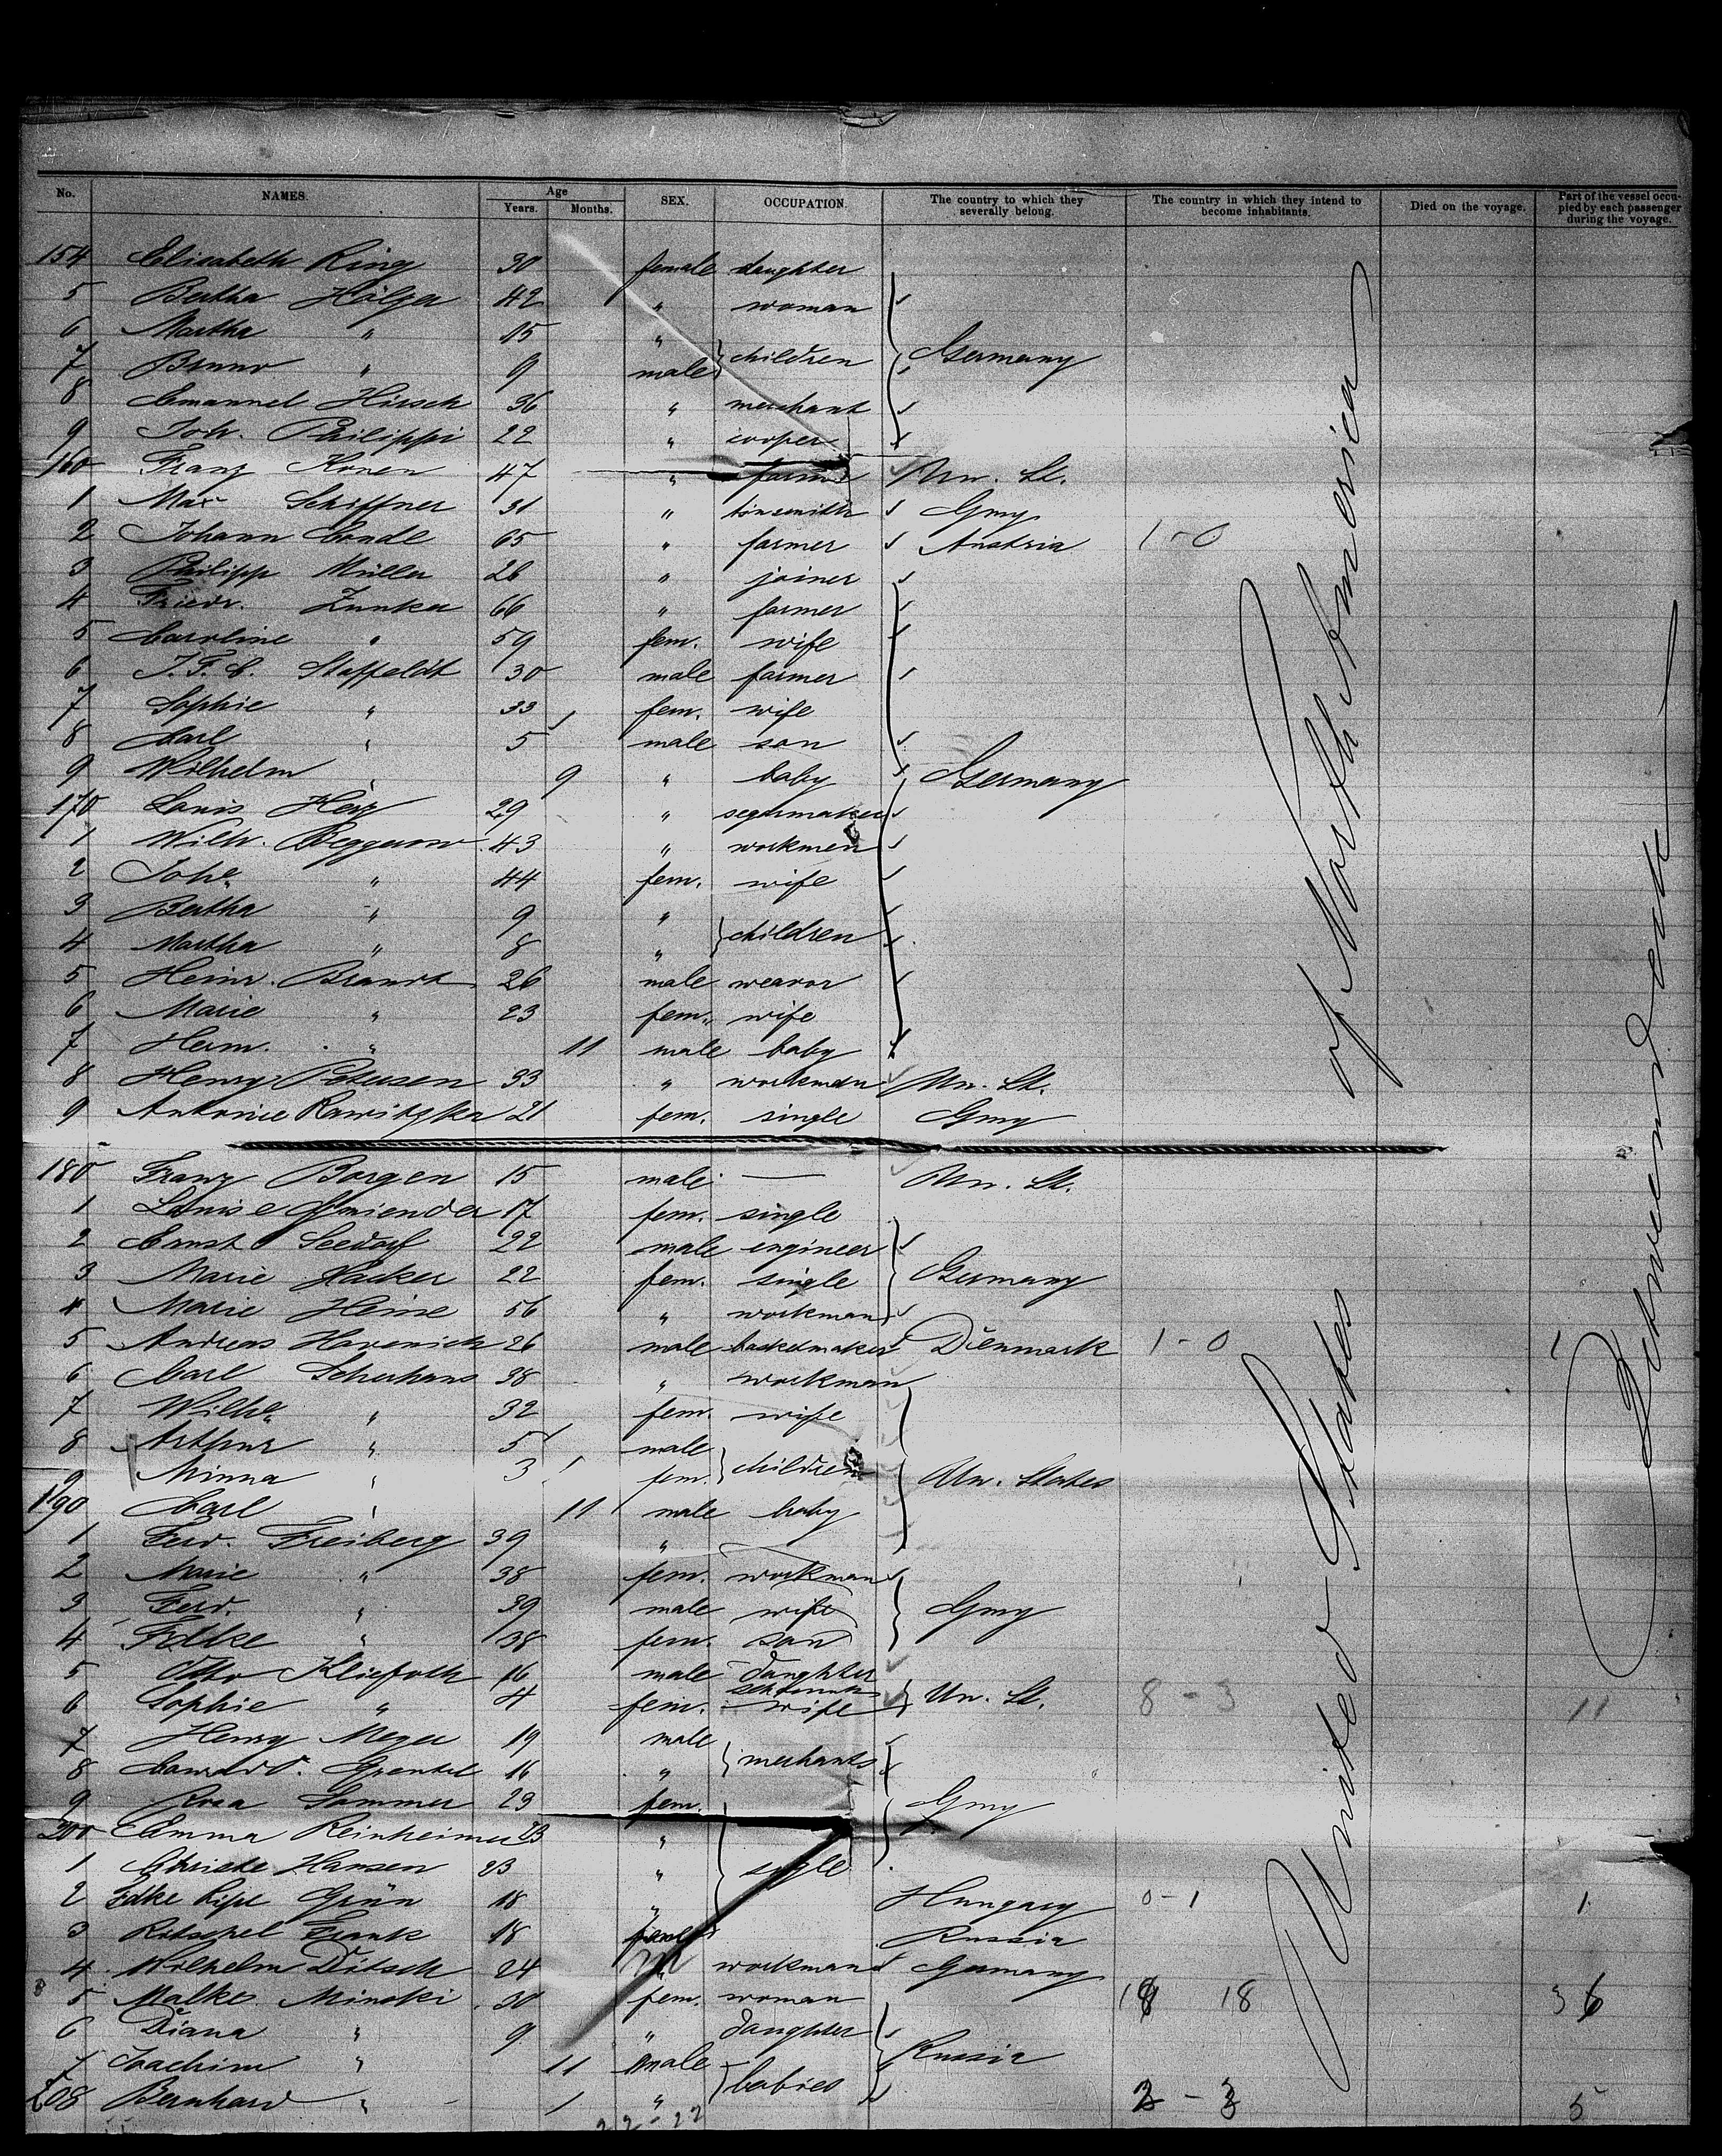 No. NAMES. Age Years. Months. SEX. OCCUPATION. The country to which they severally belong. The country in which they intend to become inhabitants. Died on the voyage. Part of the vessel occupied by each passenger during the voyage.
154 Elisabeth Ring 30 female daughter
5 Bertha Hölger 42 " woman
6 Martha " 15 "
7 Bruno " 9 male children Germany
8 Emanuel Hirsch 36 " merchant
9 Joh. Philippi 22 " cooper
160 Franz Konen 47 " farmer Un. St.
1 Max Schiffner 31 " tinsmith Gmy
2 Johann 65 " farmer Austria 1-0
3 Philipp Müller 26 " joiner
4 Friedr. Zunker 66 " farmer
5 Caroline " 59 fem. wife
6 J. F. C. Staffeldt 30 male farmer
7 Sophie " 33 fem. wife
8 Carl " 5 male son
9 Wilhelm " 9 " baby Germany
170 Louis Herz 29 " segarmaker
1 Wilh. Beggerow 43 " workmen
2 Johe " 44 fem. wife
3 Bertha " 9 "
4 Martha " 8 " children
5 Heinr. Brandt 26 male weavor
6 Marie " 23 fem. wife
7 Herm. " 11 male baby
8 Henry Petersen 33 " workman Un. St.
9 Antonie 21 fem. single Gmy
180 Franz Borgen 15 male — Un. St.
1 Louise 17 fem. single
2 Ernst Seedorf 22 male engineer
3 Marie Hacker 22 fem. single Germany
4 Marie Heine 56 " workman
5 Andreas 26 male basketmaker Dienmark 1-0 1
6 Carl 38 " workman
7 Wilhe " 32 fem. wife
8 Arthur " 5 male
9 Minna " 3 fem. children Un. States
190 Carl " 11 male baby
1 Ferd. Freiberg 39 "
2 Marie " 38 fem. workman
3 Ferd. " 39 male wife Gmy
4 Fdke " 38 fem. son
5 Otto Kliefoth 16 male daughter
6 Sophie " 4 fem. wife Un. St. 8-3 11
7 Henry Meyer 19 male
8 16 " merhants
9 Rosa Sommer 29 fem. Gmy
200 Emma Reinheimer 23 "
1 Hansen 23 " sigle
2 Fdke Grün 18 " Hungary 0-1 1
3 Frank 18 Russia
4 Wilhelm Ditsch 24 workman Germany
5 Malke Minski 30 fem. woman 18 18 36
6 Diana " 9 " daughter
7 Joachim " 11 male Russia
208 Bernhard " 1 " babies 3 5
22-22
United States of North America
Between deck